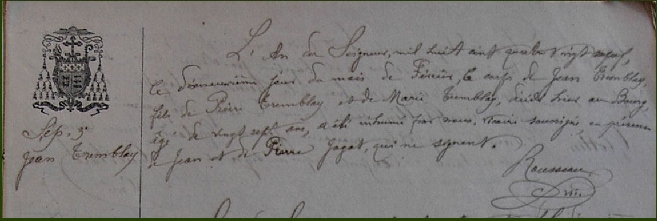 L'An du Seigneur, mil huit cent quatre vingt
le jour du mois de Février, le corps de Jean Tremblay,
fils de Pierre Tremblay et de Marie Tremblay, décédé hier au Bourg,
âgé de vingt sept ans, a été inhumé par nous, soussigné en présence
de Jean et de Pierre Jagot, qui ne signent.
Rousseau
Sep. 5
Jean Tremblay